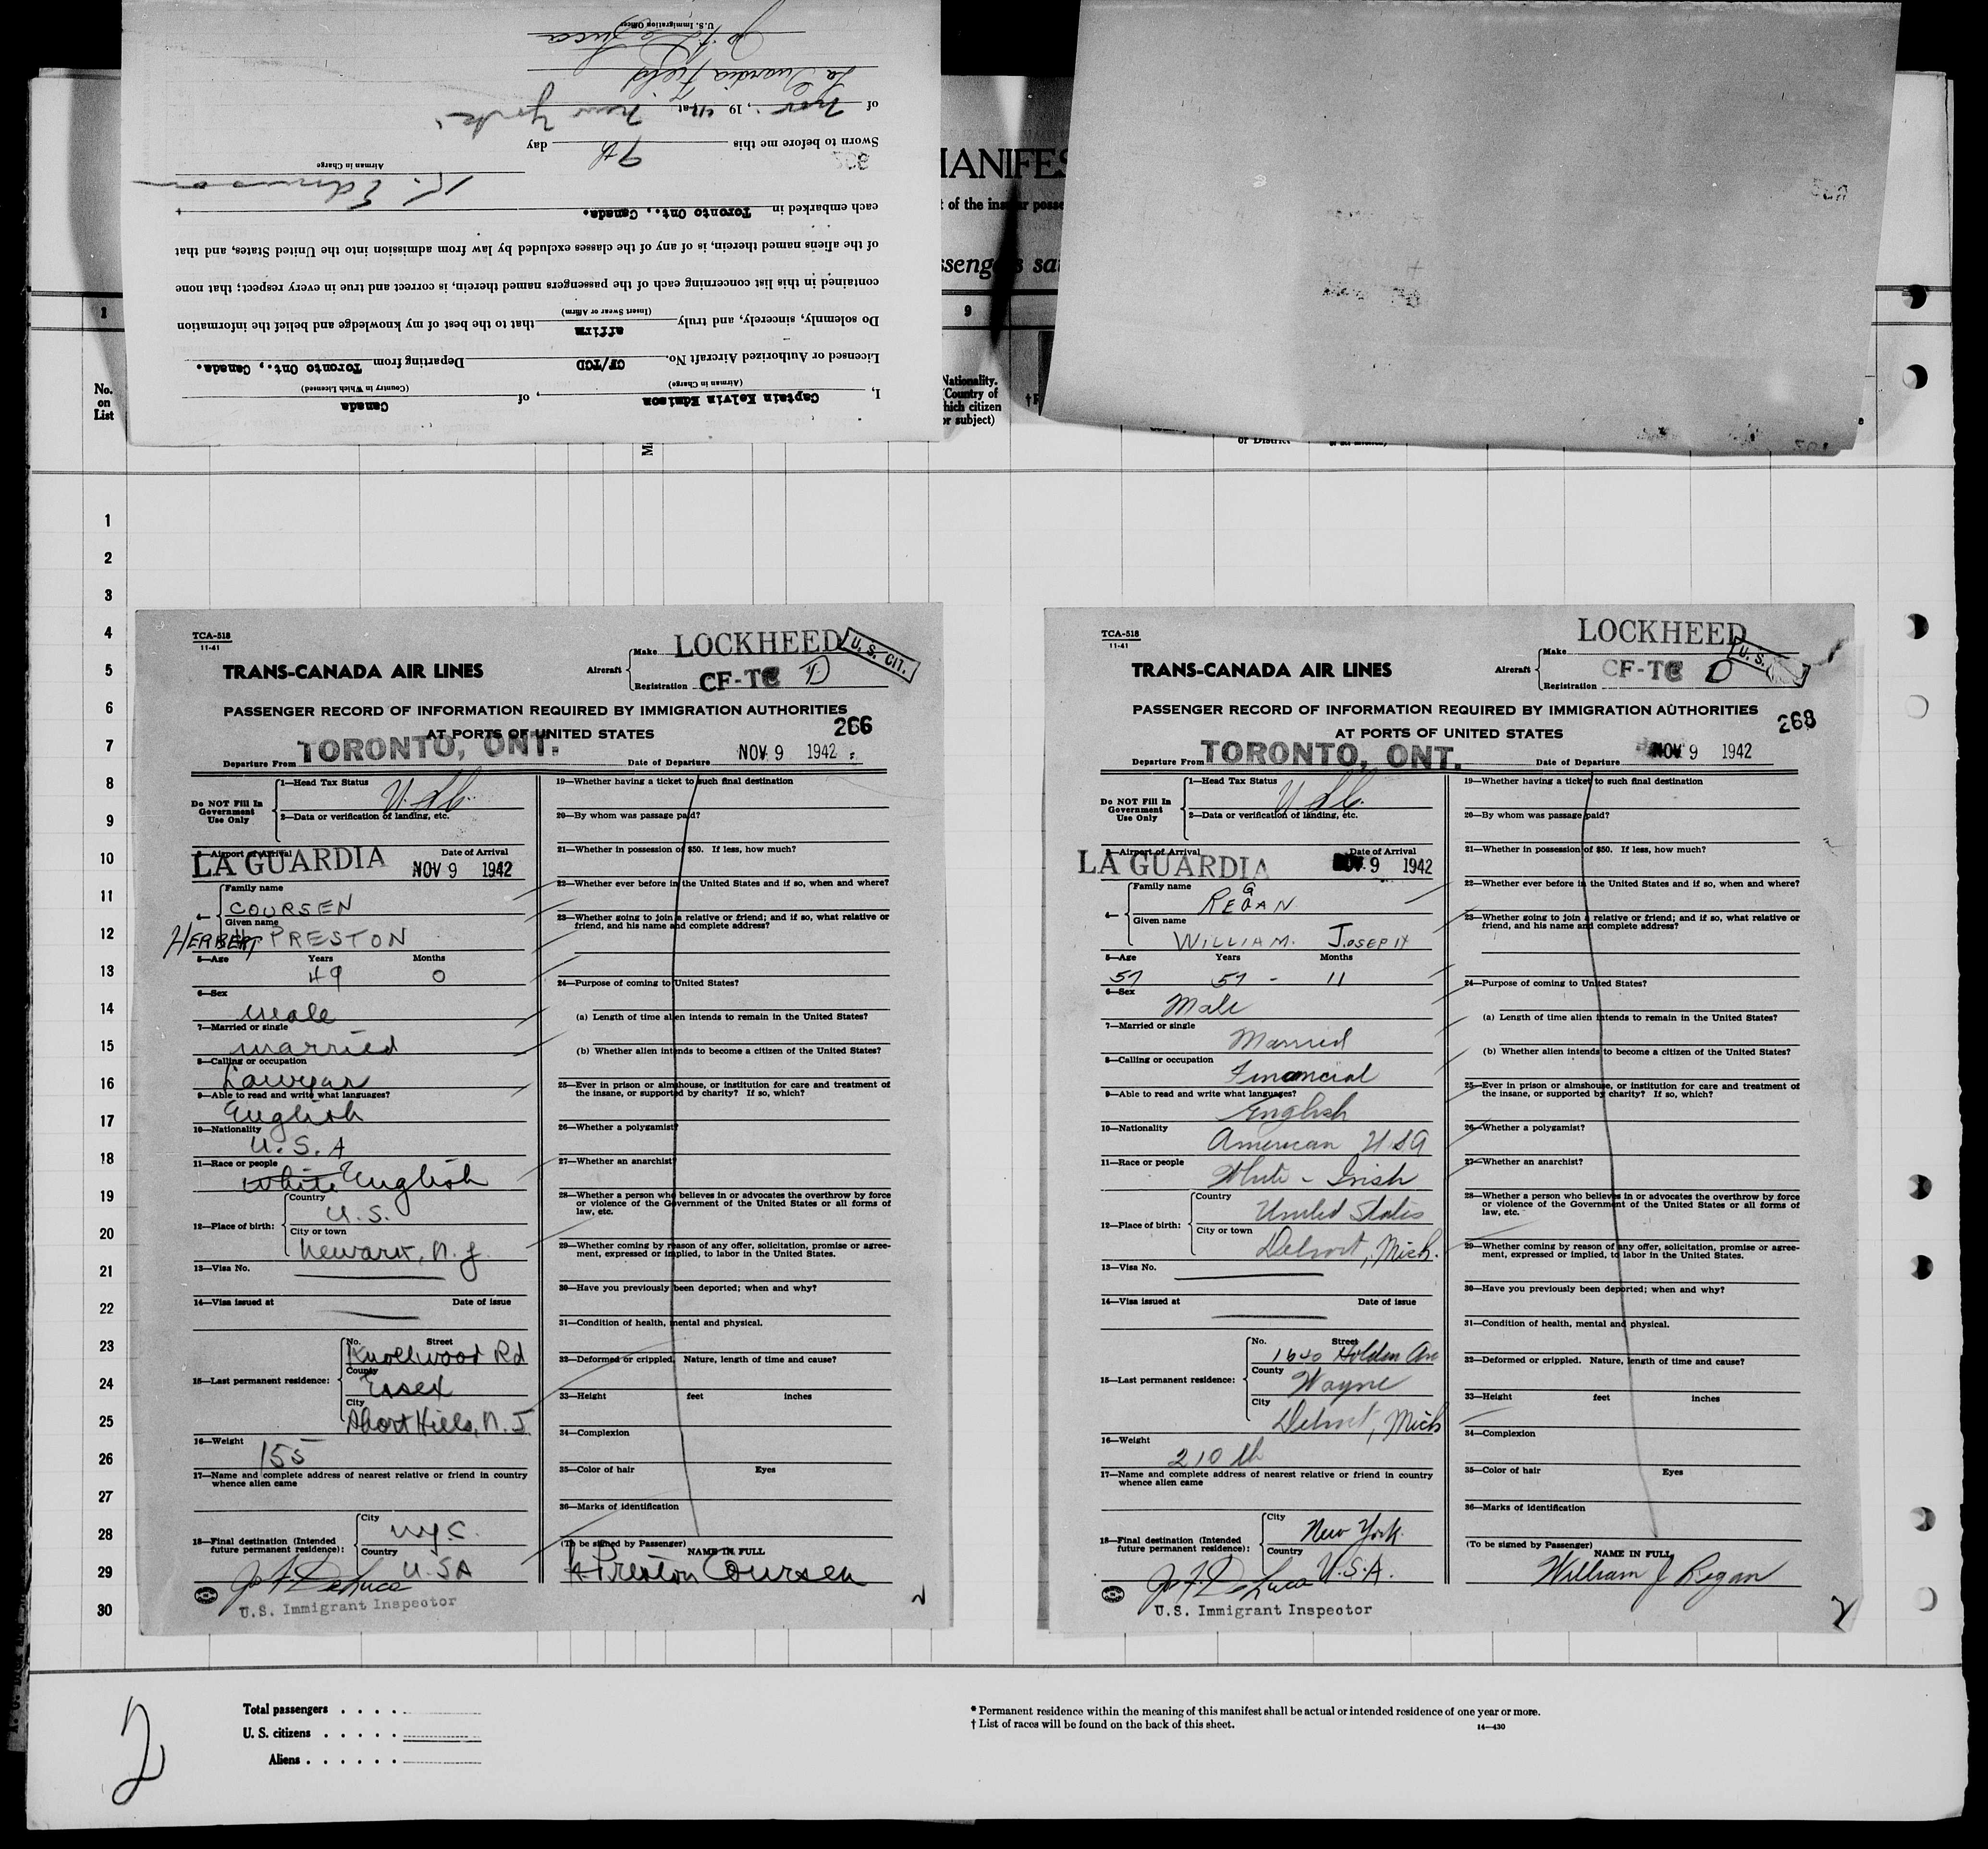 I, Captain Kelvin Edmison, of Canada
(Airman in Charge) (Country in Which Licensed)
Licensed or Authorized Aircraft No. CF/TCD Departing from Toronto Ont., Canada.
Do solemnly, sincerely, and truly affirm that to the best of my knowledge and belief the information
(Insert Swear or Affirm)
contained in this list concerning each of the passengers named therein, is correct and true in every respect; that none
of the aliens named therein, is of any of the classes excluded by law from admission into the United States, and that
each embarked in Toronto Ont., Canada.
K. Edmison
Airman in Charge
Sworn to before me this 9th day
of Nov., 1942 at New York
La Guardia Field
U.S. Immigration Officer
MANIFES
t of the
1
9
No.
on
List
Nationality.
Country of
which citizen
or subject)
1
2
3
4
5
6
7
8
9
10
11
12
13
14
15
16
17
18
19
20
21
22
23
24
25
26
27
28
29
30
TCA-518
11-41
TRANS-CANADA AIR LINES
Aircraft
Make LOCKHEED
Registration CF-TC D
U. S. CIT.
PASSENGER RECORD OF INFORMATION REQUIRED BY IMMIGRATION AUTHORITIES
AT PORTS OF UNITED STATES
266
Departure From TORONTO, ONT. Date of Departure NOV 9 1942
Do NOT Fill In
Government
Use Only
1—Head Tax Status
2—Data or verification of landing, etc.
3—Airport of Arrival Date of Arrival
LA GUARDIA NOV 9 1942
4—
Family name
COURSEN
Given name
HERBERT PRESTON
5—Age Years Months
49 0
6—Sex
male
7—Married or single
married
8—Calling or occupation
Lawyer
9—Able to read and write what languages?
English
10—Nationality
U.S.A
11—Race or people
white English
12—Place of birth:
Country
U.S.
City or town
Newark, N.J.
13—Visa No.
14—Visa issued at Date of issue
15—Last permanent residence:
No. Street
Knollwood Rd
County
Essex
City
Short Hills, N.J.
16—Weight
155
17—Name and complete address of nearest relative or friend in country
whence alien came
18—Final destination (Intended
future permanent residence):
City
NYC.
Country
U.S.A
U.S. Immigrant Inspector
19—Whether having a ticket to such final destination
20—By whom was passage paid?
21—Whether in possession of $50. If less, how much?
22—Whether ever before in the United States and if so, when and where?
23—Whether going to join a relative or friend; and if so, what relative or
friend, and his name and complete address?
24—Purpose of coming to United States?
(a) Length of time alien intends to remain in the United States?
(b) Whether alien intends to become a citizen of the United States?
25—Ever in prison or almshouse, or institution for care and treatment of
the insane, or supported by charity? If so, which?
26—Whether a polygamist?
27—Whether an anarchist?
28—Whether a person who believes in or advocates the overthrow by force
or violence of the Government of the United States or all forms of
law, etc.
29—Whether coming by reason of any offer, solicitation, promise or agree-
ment, expressed or implied, to labor in the United States.
30—Have you previously been deported; when and why?
31—Condition of health, mental and physical.
32—Deformed or crippled. Nature, length of time and cause?
33—Height feet inches
34—Complexion
35—Color of hair Eyes
36—Marks of identification
(To be signed by Passenger)
NAME IN FULL
H Preston Coursen
TCA-518
11-41
TRANS-CANADA AIR LINES
Aircraft
Make LOCKHEED
Registration CF-TC D
U. S.
PASSENGER RECORD OF INFORMATION REQUIRED BY IMMIGRATION AUTHORITIES
AT PORTS OF UNITED STATES
268
Departure From TORONTO, ONT. Date of Departure NOV 9 1942
Do NOT Fill In
Government
Use Only
1—Head Tax Status
2—Data or verification of landing, etc.
3—Airport of Arrival Date of Arrival
LA GUARDIA NOV 9 1942
4—
Family name
REGAN
Given name
WILLIAM. JOSEPH
5—Age Years Months
57 57 - 11
6—Sex
Male
7—Married or single
Married
8—Calling or occupation
Financial
9—Able to read and write what languages?
English
10—Nationality
American USA
11—Race or people
White - Irish
12—Place of birth:
Country
United States
City or town
Detroit, Mich.
13—Visa No.
14—Visa issued at Date of issue
15—Last permanent residence:
No. Street
1640 Holden Ave
County
Wayne
City
Detroit, Mich
16—Weight
210 lb
17—Name and complete address of nearest relative or friend in country
whence alien came
18—Final destination (Intended
future permanent residence):
City
New York.
Country
U.S.A.
U.S. Immigrant Inspector
19—Whether having a ticket to such final destination
20—By whom was passage paid?
21—Whether in possession of $50. If less, how much?
22—Whether ever before in the United States and if so, when and where?
23—Whether going to join a relative or friend; and if so, what relative or
friend, and his name and complete address?
24—Purpose of coming to United States?
(a) Length of time alien intends to remain in the United States?
(b) Whether alien intends to become a citizen of the United States?
25—Ever in prison or almshouse, or institution for care and treatment of
the insane, or supported by charity? If so, which?
26—Whether a polygamist?
27—Whether an anarchist?
28—Whether a person who believes in or advocates the overthrow by force
or violence of the Government of the United States or all forms of
law, etc.
29—Whether coming by reason of any offer, solicitation, promise or agree-
ment, expressed or implied, to labor in the United States.
30—Have you previously been deported; when and why?
31—Condition of health, mental and physical.
32—Deformed or crippled. Nature, length of time and cause?
33—Height feet inches
34—Complexion
35—Color of hair Eyes
36—Marks of identification
(To be signed by Passenger)
NAME IN FULL
William J Regan
2
Total passengers
U. S. citizens
Aliens
* Permanent residence within the meaning of this manifest shall be actual or intended residence of one year or more.
† List of races will be found on the back of this sheet.
14—430